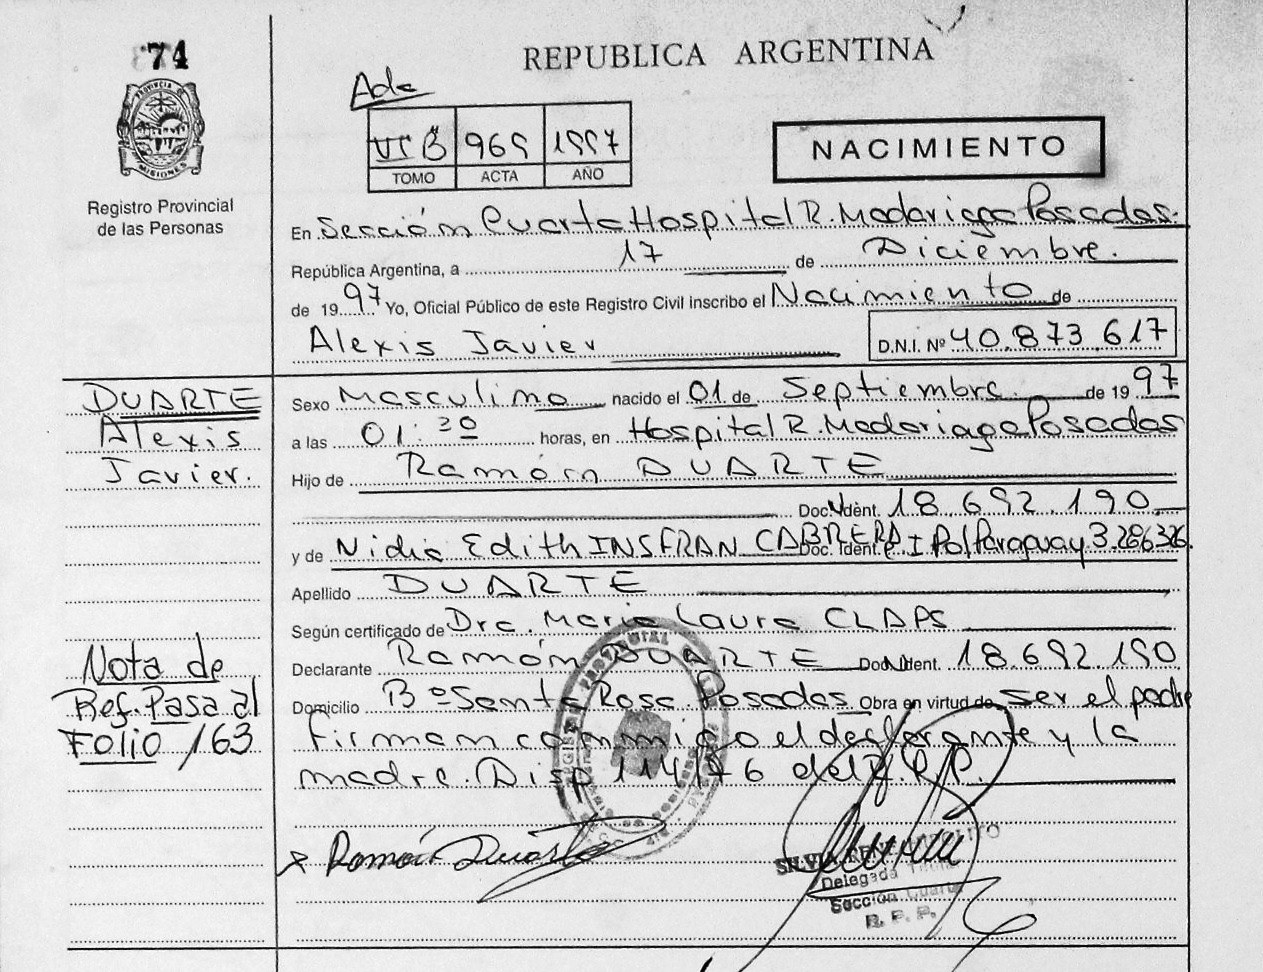 74
REPUBLICA ARGENTINA
PROVINCIA DE MISIONES
Registro Provincial
de las Personas
Ada
VI B 969 1997
TOMO ACTA AÑO
NACIMIENTO
En Sección Cuarta Hospital R. Madariaga Posadas.
República Argentina, a 17 de Diciembre.
de 1997 Yo, Oficial Público de este Registro Civil inscribo el Nacimiento de
Alexis Javier D.N.I. Nº 40.873.617
DUARTE
Alexis
Javier.
Sexo Masculino nacido el 01 de Septiembre. de 1997
a las 01:30 horas, en Hospital R. Madariaga Posadas
Hijo de Ramón DUARTE
Doc. Ident. 18.692.190
y de Nidia Edith INSFRAN CABRERA Doc. Ident. C.I. Pol Paraguay 3.286.326
Apellido DUARTE
Según certificado de Dra. Maria Laura CLAPS
Declarante Ramón DUARTE Doc. Ident. 18.692.190
Domicilio Bº Santa Rosa Posadas Obra en virtud de ser el padre
firman conmigo el declarante y la
madre. Disp 114/76 del R.P.P.
Nota de
Ref. Pasa al
Folio 163
x Ramón Duarte
SILVIA
Delegada
Sección Cuarta
R. P. P.